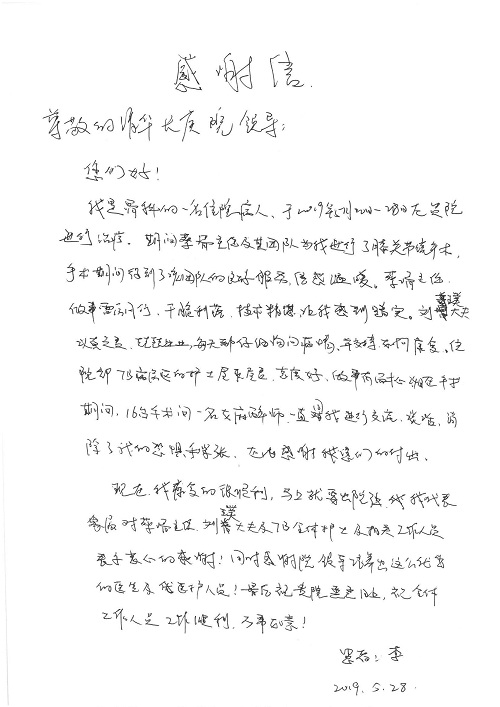 感谢信
尊敬的清华长庚院领导：
您们好！
我是骨科的一名住院病人，于2019年5月20日-28日在贵院
进行治疗。期间李 主任及其团队为我进行了膝关节 手术，
手术期间得到了 团队的良好服务，倍感温暖。李 主任
做事雷厉风行，干脆利落，技术精湛，让我感到踏实。刘 大夫
以 ， ，每天都仔细询问病情， 如何康复。住
院部7B病房区的护士 ，态度好，做事 在手术
期间，16号手术间一名女麻醉师一直跟我进行交流、谈论，消
除了我的恐惧和紧张，在此感谢 们的付出。
现在，我康复的很顺利，马上就要出院 我代表
家属对李 主任、刘 大夫及7B全体护士及相关工作人员
表示衷心的感谢！同时感谢院领导培养出这么优秀
的医生及 医护人员！最后祝贵院 ，祝全体
工作人员工作顺利，万事如意！
患者：李
2019.5.28.